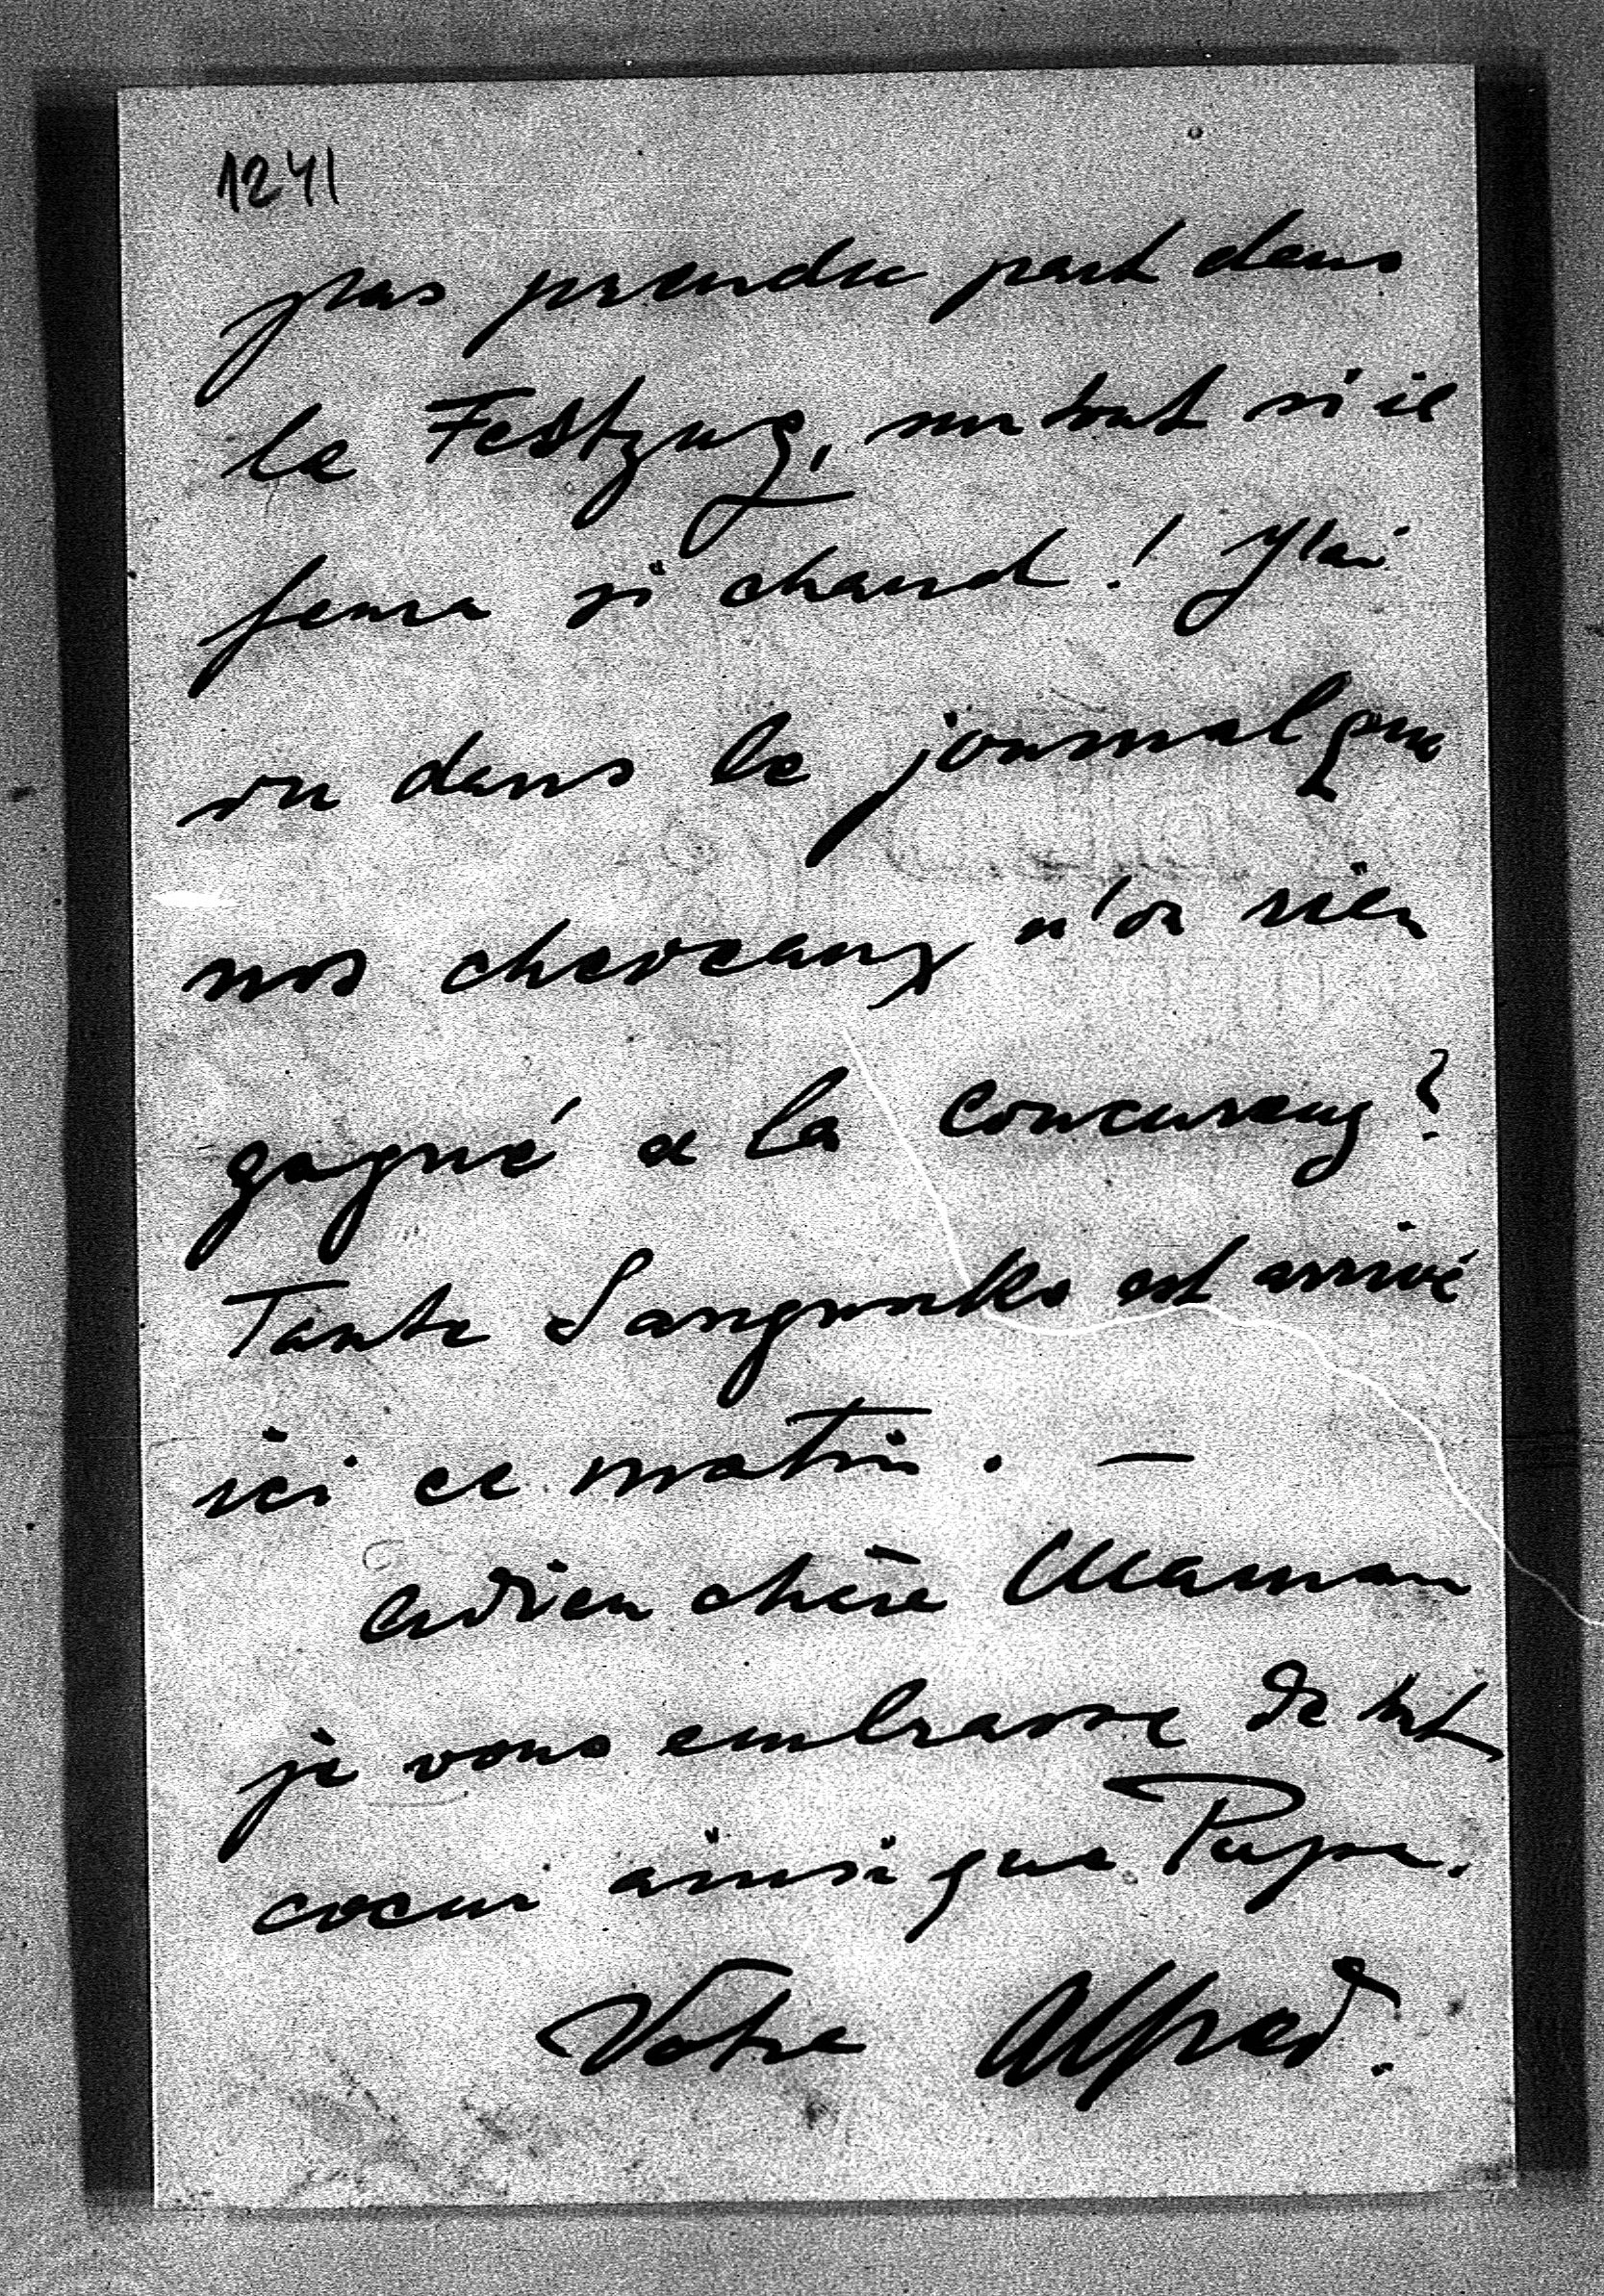 1241
pas prendre part dans
le Festzug, surtout s'il
fera si chaud! J'ai
vu dans le journal que
nos cheveaux n'on rien
gagné a la concureng?
Tante Sanguszko est arrivé
ici ce matin. —
Adieu chère Maman
je vous embrasse de tout
coeur ainsi que Papa.
Votre Alfred.